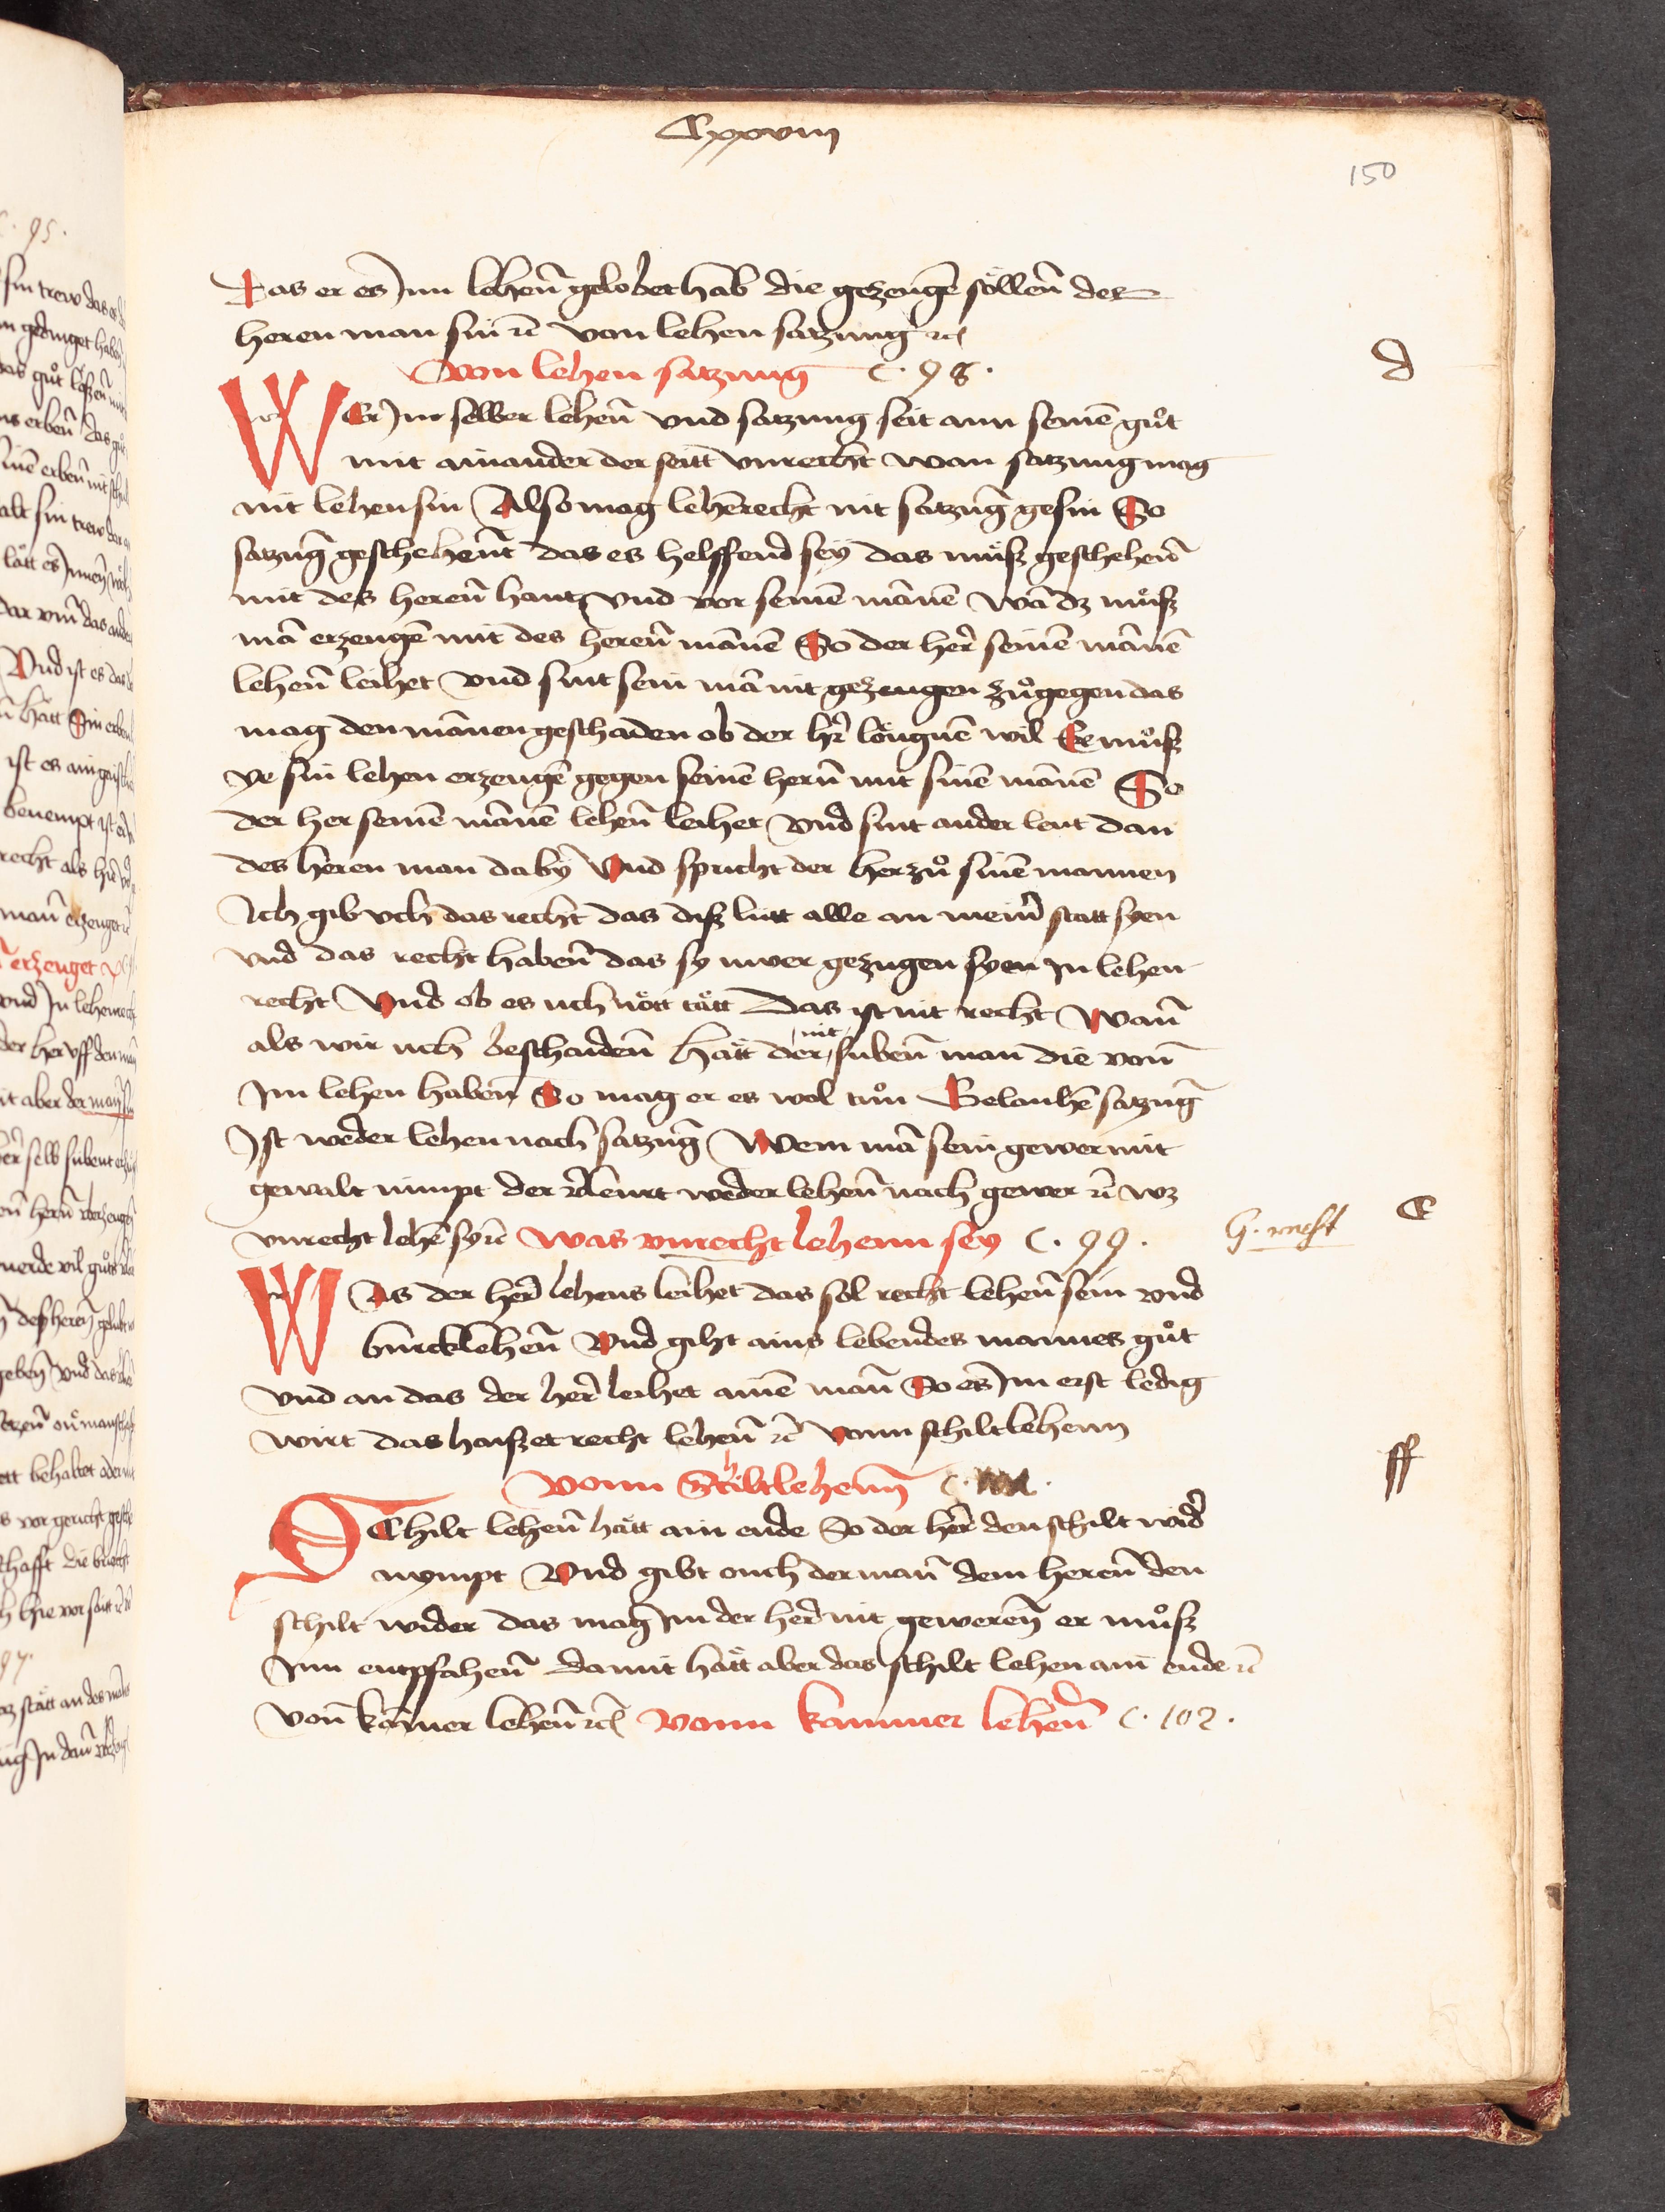 Clxxviii
150
Das er es Jnn lehen̄ gelobet hab die gezeugē söllen̄ des
heren man sin ꝛc̄ von lehen satzung ꝛc̄
Von lehen satzung C. 98.
d
WEr Jm selber lehen̄ vnd satzung seit ann seinē gůt
mit ainander der seitt vnrecht wan satzung mag
nit lehen sin Also mag lehērecht nit satzūg gesin So
satzūg geschehen̄t das es helffend sey das můsz geschehen̄
mit des heren̄ hant vnd vor seinē mānē wā dz můsz
mā erzeugē mit des heren̄ mānē So der her̄ seinē mānē
lehen̄ leihet vnd sint sein mā nit gezeugen zůgegen das
mag den mānen geschaden ob der hr̄ löugnē wil Er můsz
ye sin lehen erzeugē gegen seinē hern̄ mit sinē mānē So
der her seinē mānē lehen̄ leihet vnd sint ander leut dan
des heren man daby Vnd spricht der her zů sinē mannen
Ich gib vch das recht das disz lütt alle an mein̄ statt syen
vnd das recht haben̄ das sy uwer gezugen syen Jn lehen
recht Vnd ob es uch nött tätt Das ist nit recht Wan̄
als wir uch beschaiden̄ Hatt der nit suben̄ man die von̄
Jm lehen haben So mag er es wol tůn Gelauhē satzūg
Jst weder lehen nach satzūg Wem mā sein gewer mit
gewalt nimpt der weder lehen̄ nach gewer ꝛc̄ wz
vnrecht lehē sy ꝛc̄ Was vnrecht lehenn sey C. 99.
G. recht
E
WAs der her̄ lehens leihet das sol recht lehen̄ sein vnd
burcklehen̄ Vnd giht ains lebendes mannes gůt
vnd an das der her̄ leihet ainē man̄ So es Jm erst ledig
wirt das haiszet recht lehen̄ ꝛc̄ vonn schiltlehenn
Vonn Schiltlehenn C.
ff
SChilt lehen̄ hatt ain ende So der her̄ den schilt wid̄
nympt Vnd gibt ouch der man̄ dem heren̄ den
schilt wider das mag Jm der her̄ nit geweren̄ er můsz
Jnn entpfahen̄ damit hatt aber das schilt lehen ain ende ꝛc̄
Von̄ kāmer lehen̄ ꝛc̄ Vonn kammer lehen̄ C. 102.